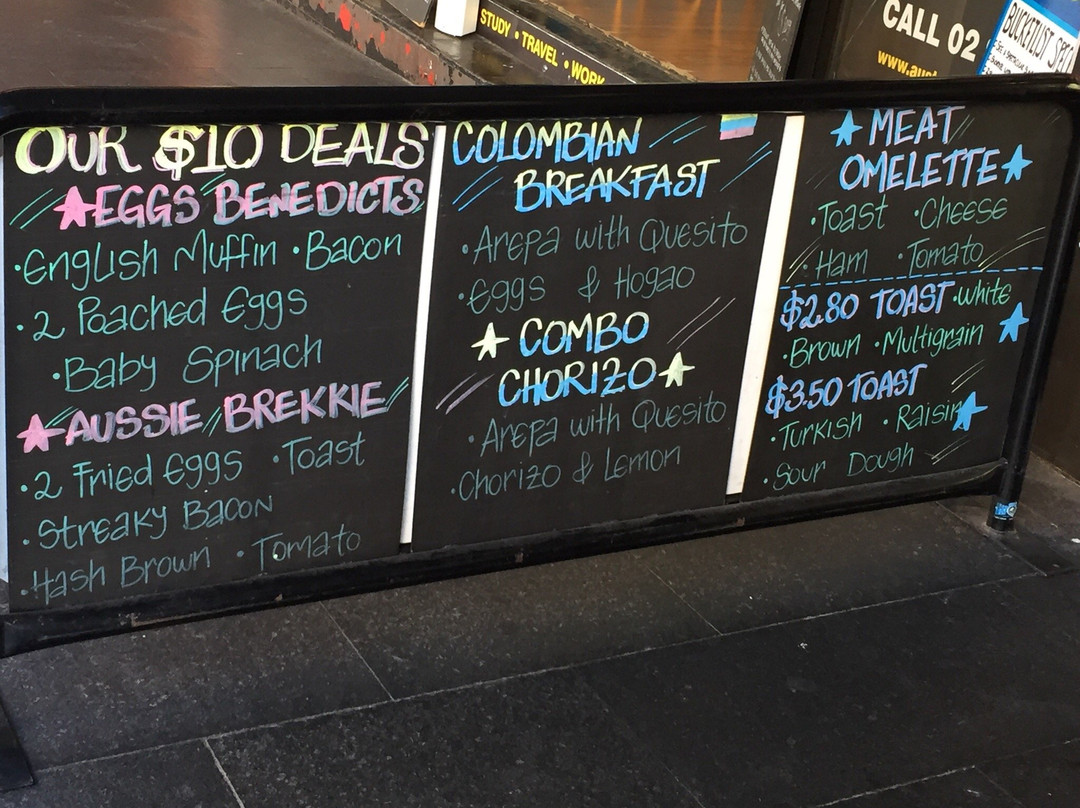 STUDY • TRAVEL • WORK
CALL 02
www.aust
BUCKETLIST
OUR $10 DEALS
EGGS BENEDICTS
•English Muffin •Bacon
•2 Poached Eggs
•Baby Spinach
AUSSIE BREKKIE
•2 Fried Eggs •Toast
•Streaky Bacon
•Hash Brown •Tomato
COLOMBIAN
BREAKFAST
•Arepa with Quesito
•Eggs & Hogao
COMBO
CHORIZO
•Arepa with Quesito
•Chorizo & Lemon
MEAT
OMELETTE
•Toast •Cheese
•Ham •Tomato
$2.80 TOAST •White
•Brown •Multigrain
$3.50 TOAST
•Turkish •Raisin
•Sour Dough